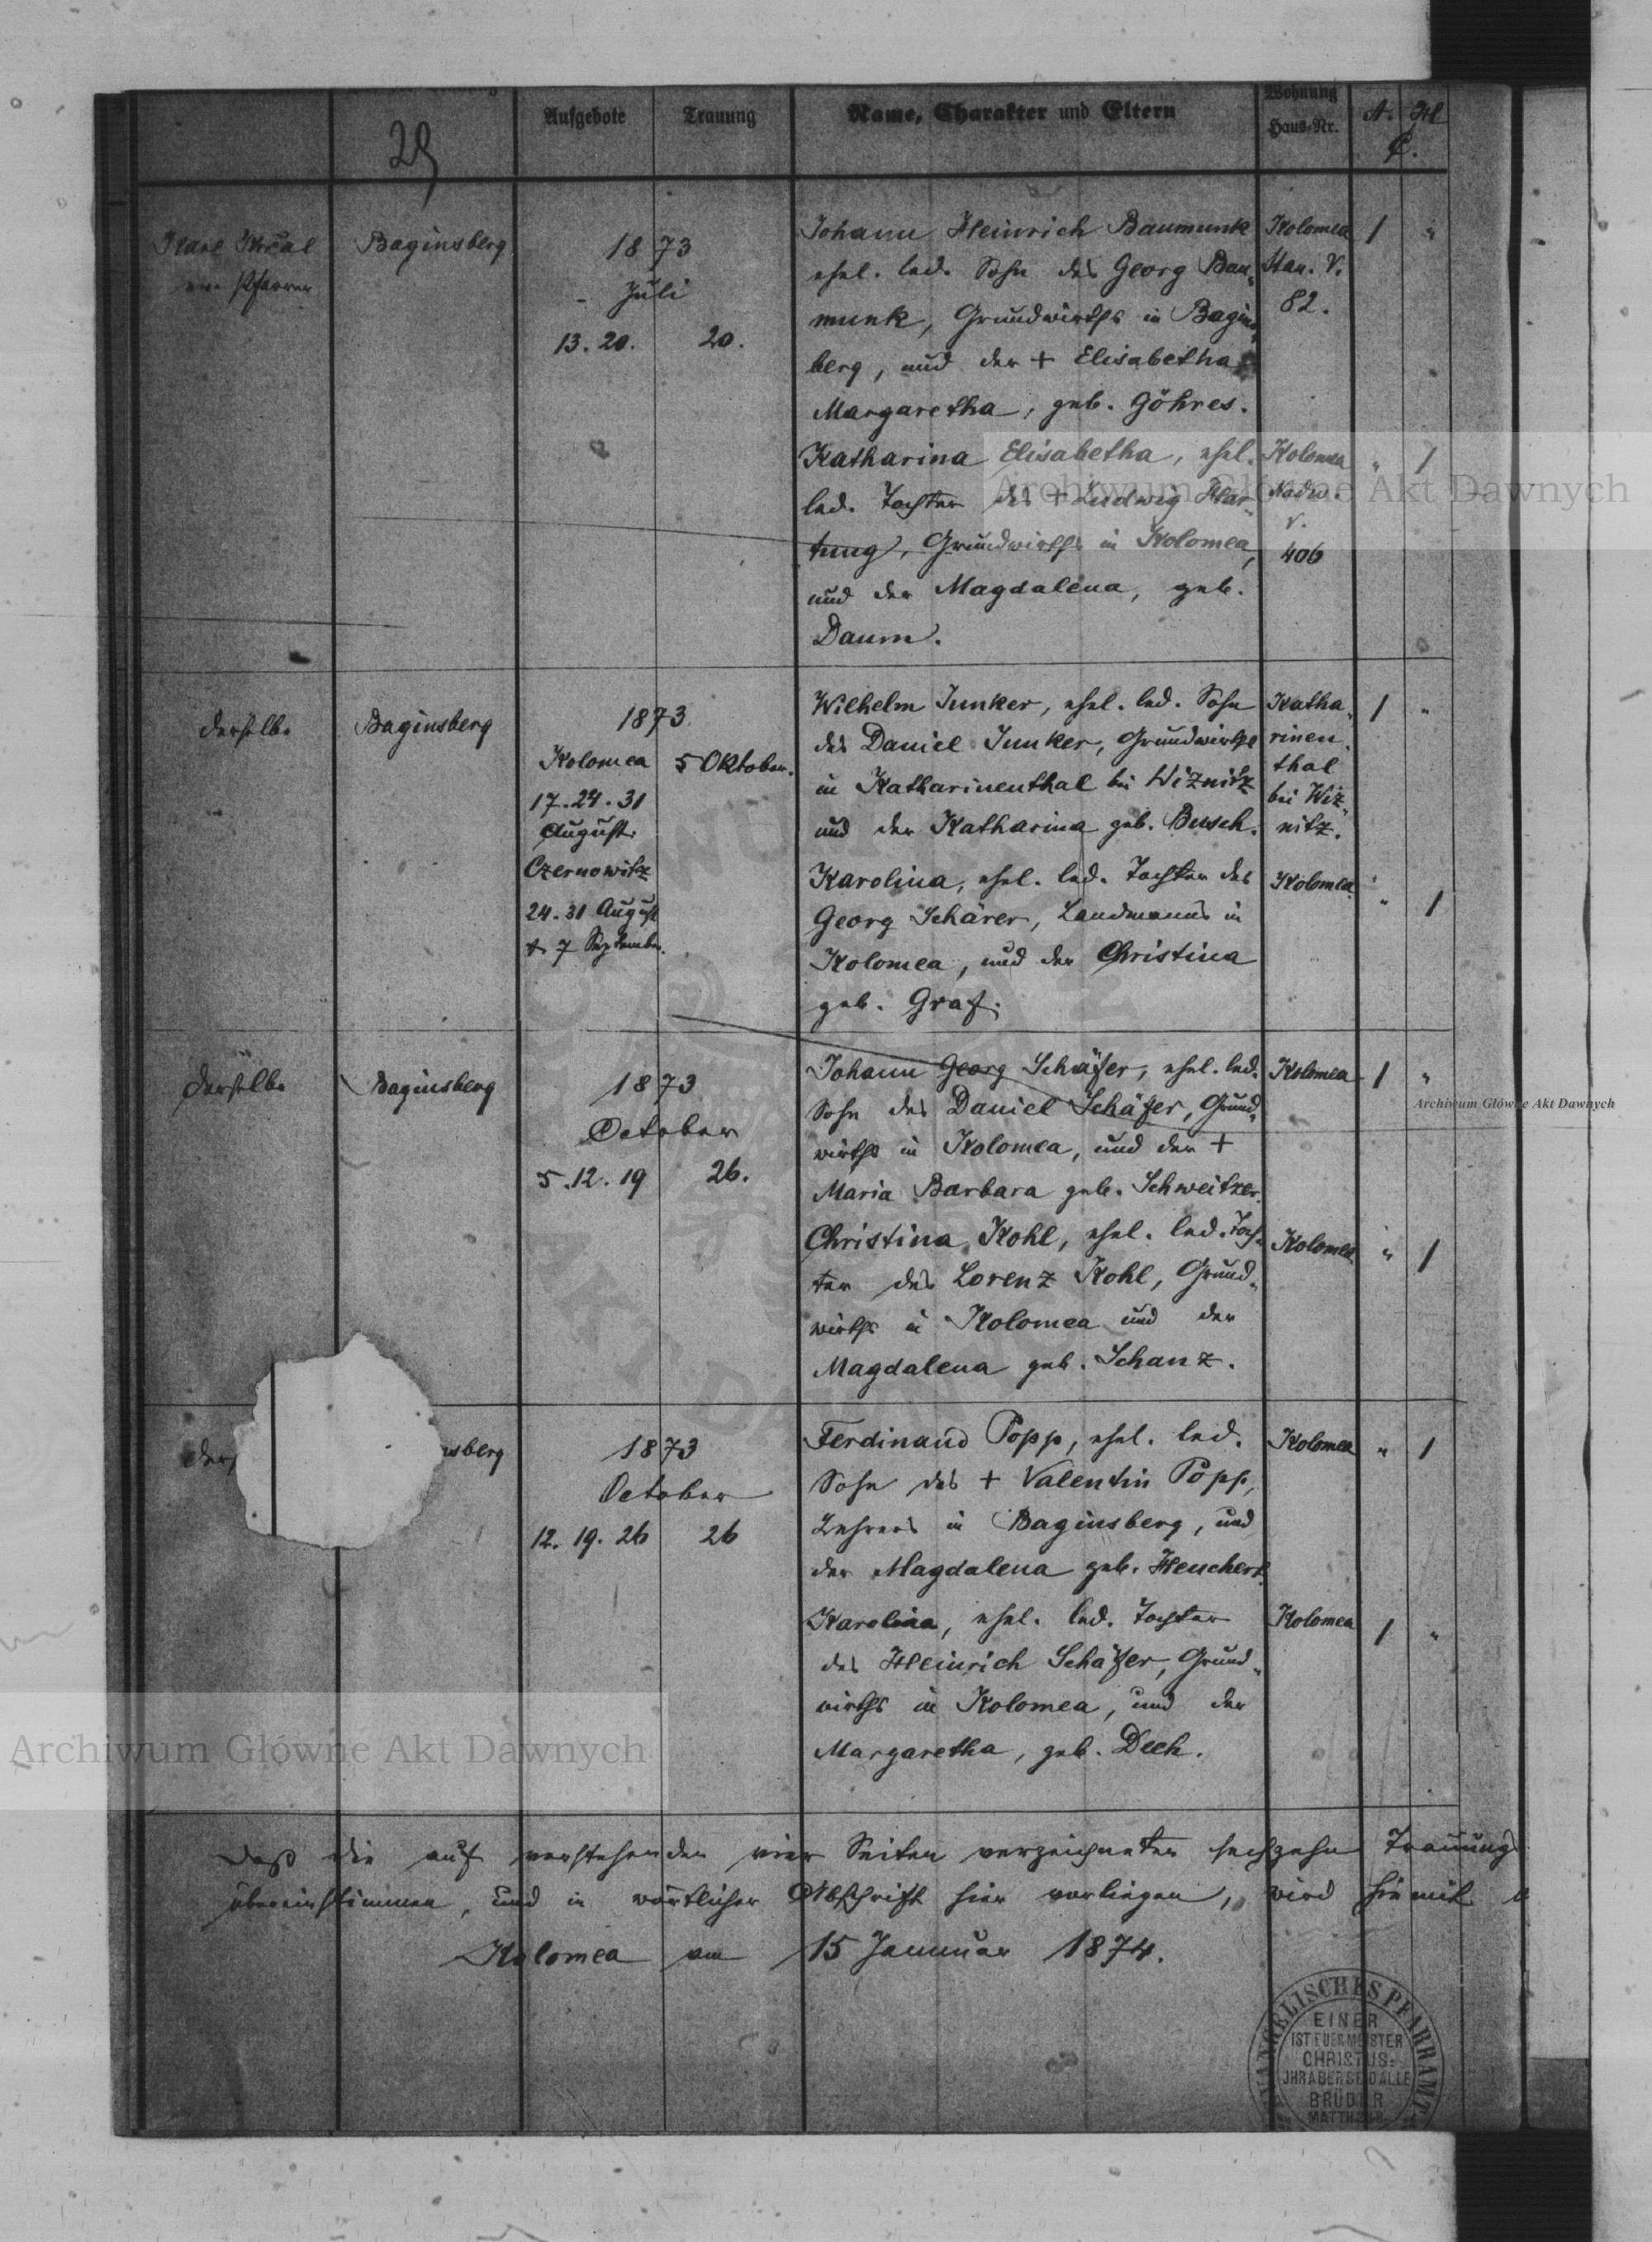 29
Aufgebote Trauung Name, Charakter und Eltern Wohnung Haus-Nr. A. H.
C.
Karl Krčal
ev. Pfarrer
Baginsberg
1873
Juli
13. 20. 20.
Johann Heinrich Baumunk
ehel. led. Sohn des Georg Bau-
munk, Grundwirths in Bagins-
berg, und der + Elisabetha
Margaretha, geb. Göhres.
Kolomea
Stan. V.
82.
1 "
Katharina Elisabetha, ehel.
led. Tochter des + Ludwig Har-
tung, Grundwirths in Kolomea,
und der Magdalena, geb.
Daum.
Kolomea
Nadw.
V.
406
" 1
derselbe
Baginsberg
1873
Kolomea
17. 24. 31
August.
Czernowitz
24. 31 August
& 7 September.
5 Oktober.
Wilhelm Junker, ehel. led. Sohn
des Daniel Junker, Grundwirths
in Katharinenthal bei Wiznitz
und der Katharina geb. Busch.
Katha-
rinen-
thal
bei Wiz-
nitz.
1 "
Karolina, ehel. led. Tochter des
Georg Schärer, Landmanns in
Kolomea, und der Christina
geb. Graf.
Kolomea
" 1
derselbe
Baginsberg
1873
October
5. 12. 19 26.
Johann Georg Schäfer, ehel. led.
Sohn des Daniel Schäfer, Grund-
wirths in Kolomea, und der +
Maria Barbara geb. Schweitzer.
Kolomea
1 "
Christina Kohl, ehel. led. Toch-
ter des Lorenz Kohl, Grund-
wirths in Kolomea und der
Magdalena geb. Schanz.
Kolomea
" 1
ders
nsberg
1873
October
12. 19. 26 26
Ferdinand Popp, ehel. led.
Sohn des + Valentin Popp,
Lehrers in Baginsberg, und
der Magdalena geb. Heuchert.
Kolomea
" 1
Karolina, ehel. led. Tochter
des Heinrich Schäfer, Grund-
wirths in Kolomea, und der
Margaretha, geb. Dech.
Kolomea
1 "
Daß die auf vorstehenden vier Seiten verzeichneten sechzehn Trauungs
übereinstimmen, und in wörtlicher Abschrift hier vorliegen, wird hiemit
Kolomea am 15 Januar 1874.
EVANGELISCHES PFARRAMT
EINER
IST EUER MEISTER
CHRISTUS:
IHR ABER SEID ALLE
BRÜDER
MATTH. 23.8.
Archiwum Główne Akt Dawnych
Archiwum Główne Akt Dawnych
Archiwum Główne Akt Dawnych